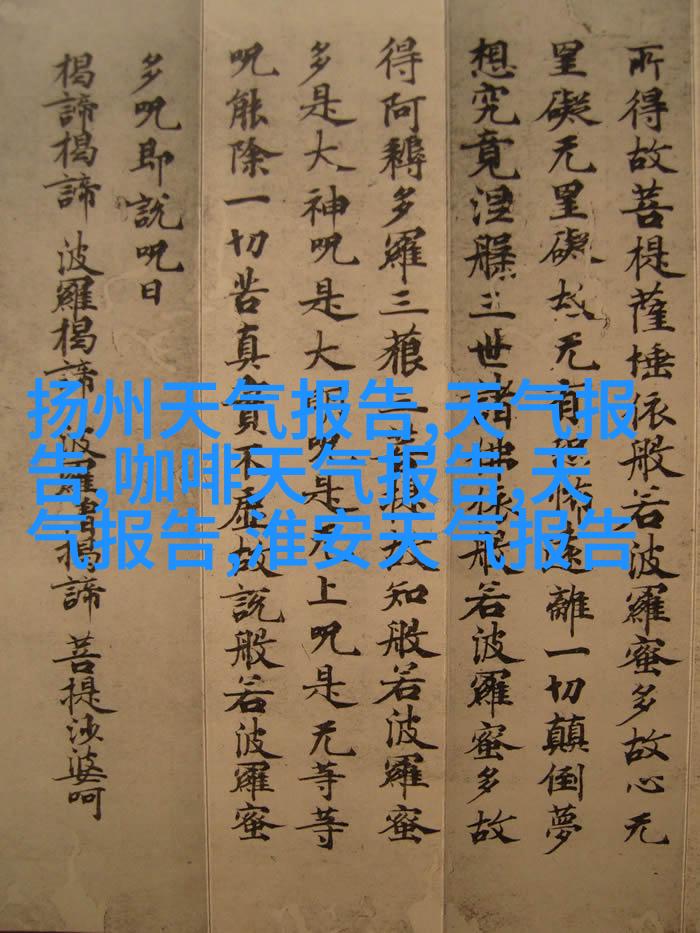 所得故菩提薩埵依般若波羅蜜多故心无
罣礙无罣礙故无有恐怖遠離一切顛倒夢
想究竟涅槃三世諸佛依般若波羅蜜多故
得阿耨多羅三藐三菩提故知般若波羅蜜
多是大神呪是大明呪是无上呪是无等等
呪能除一切苦真實不虛故說般若波羅蜜
多呪即說呪曰
揭諦揭諦 波羅揭諦 波羅僧揭諦 菩提沙婆呵
扬州天气报告,天气报
告,咖啡天气报告,天
气报告,淮安天气报告